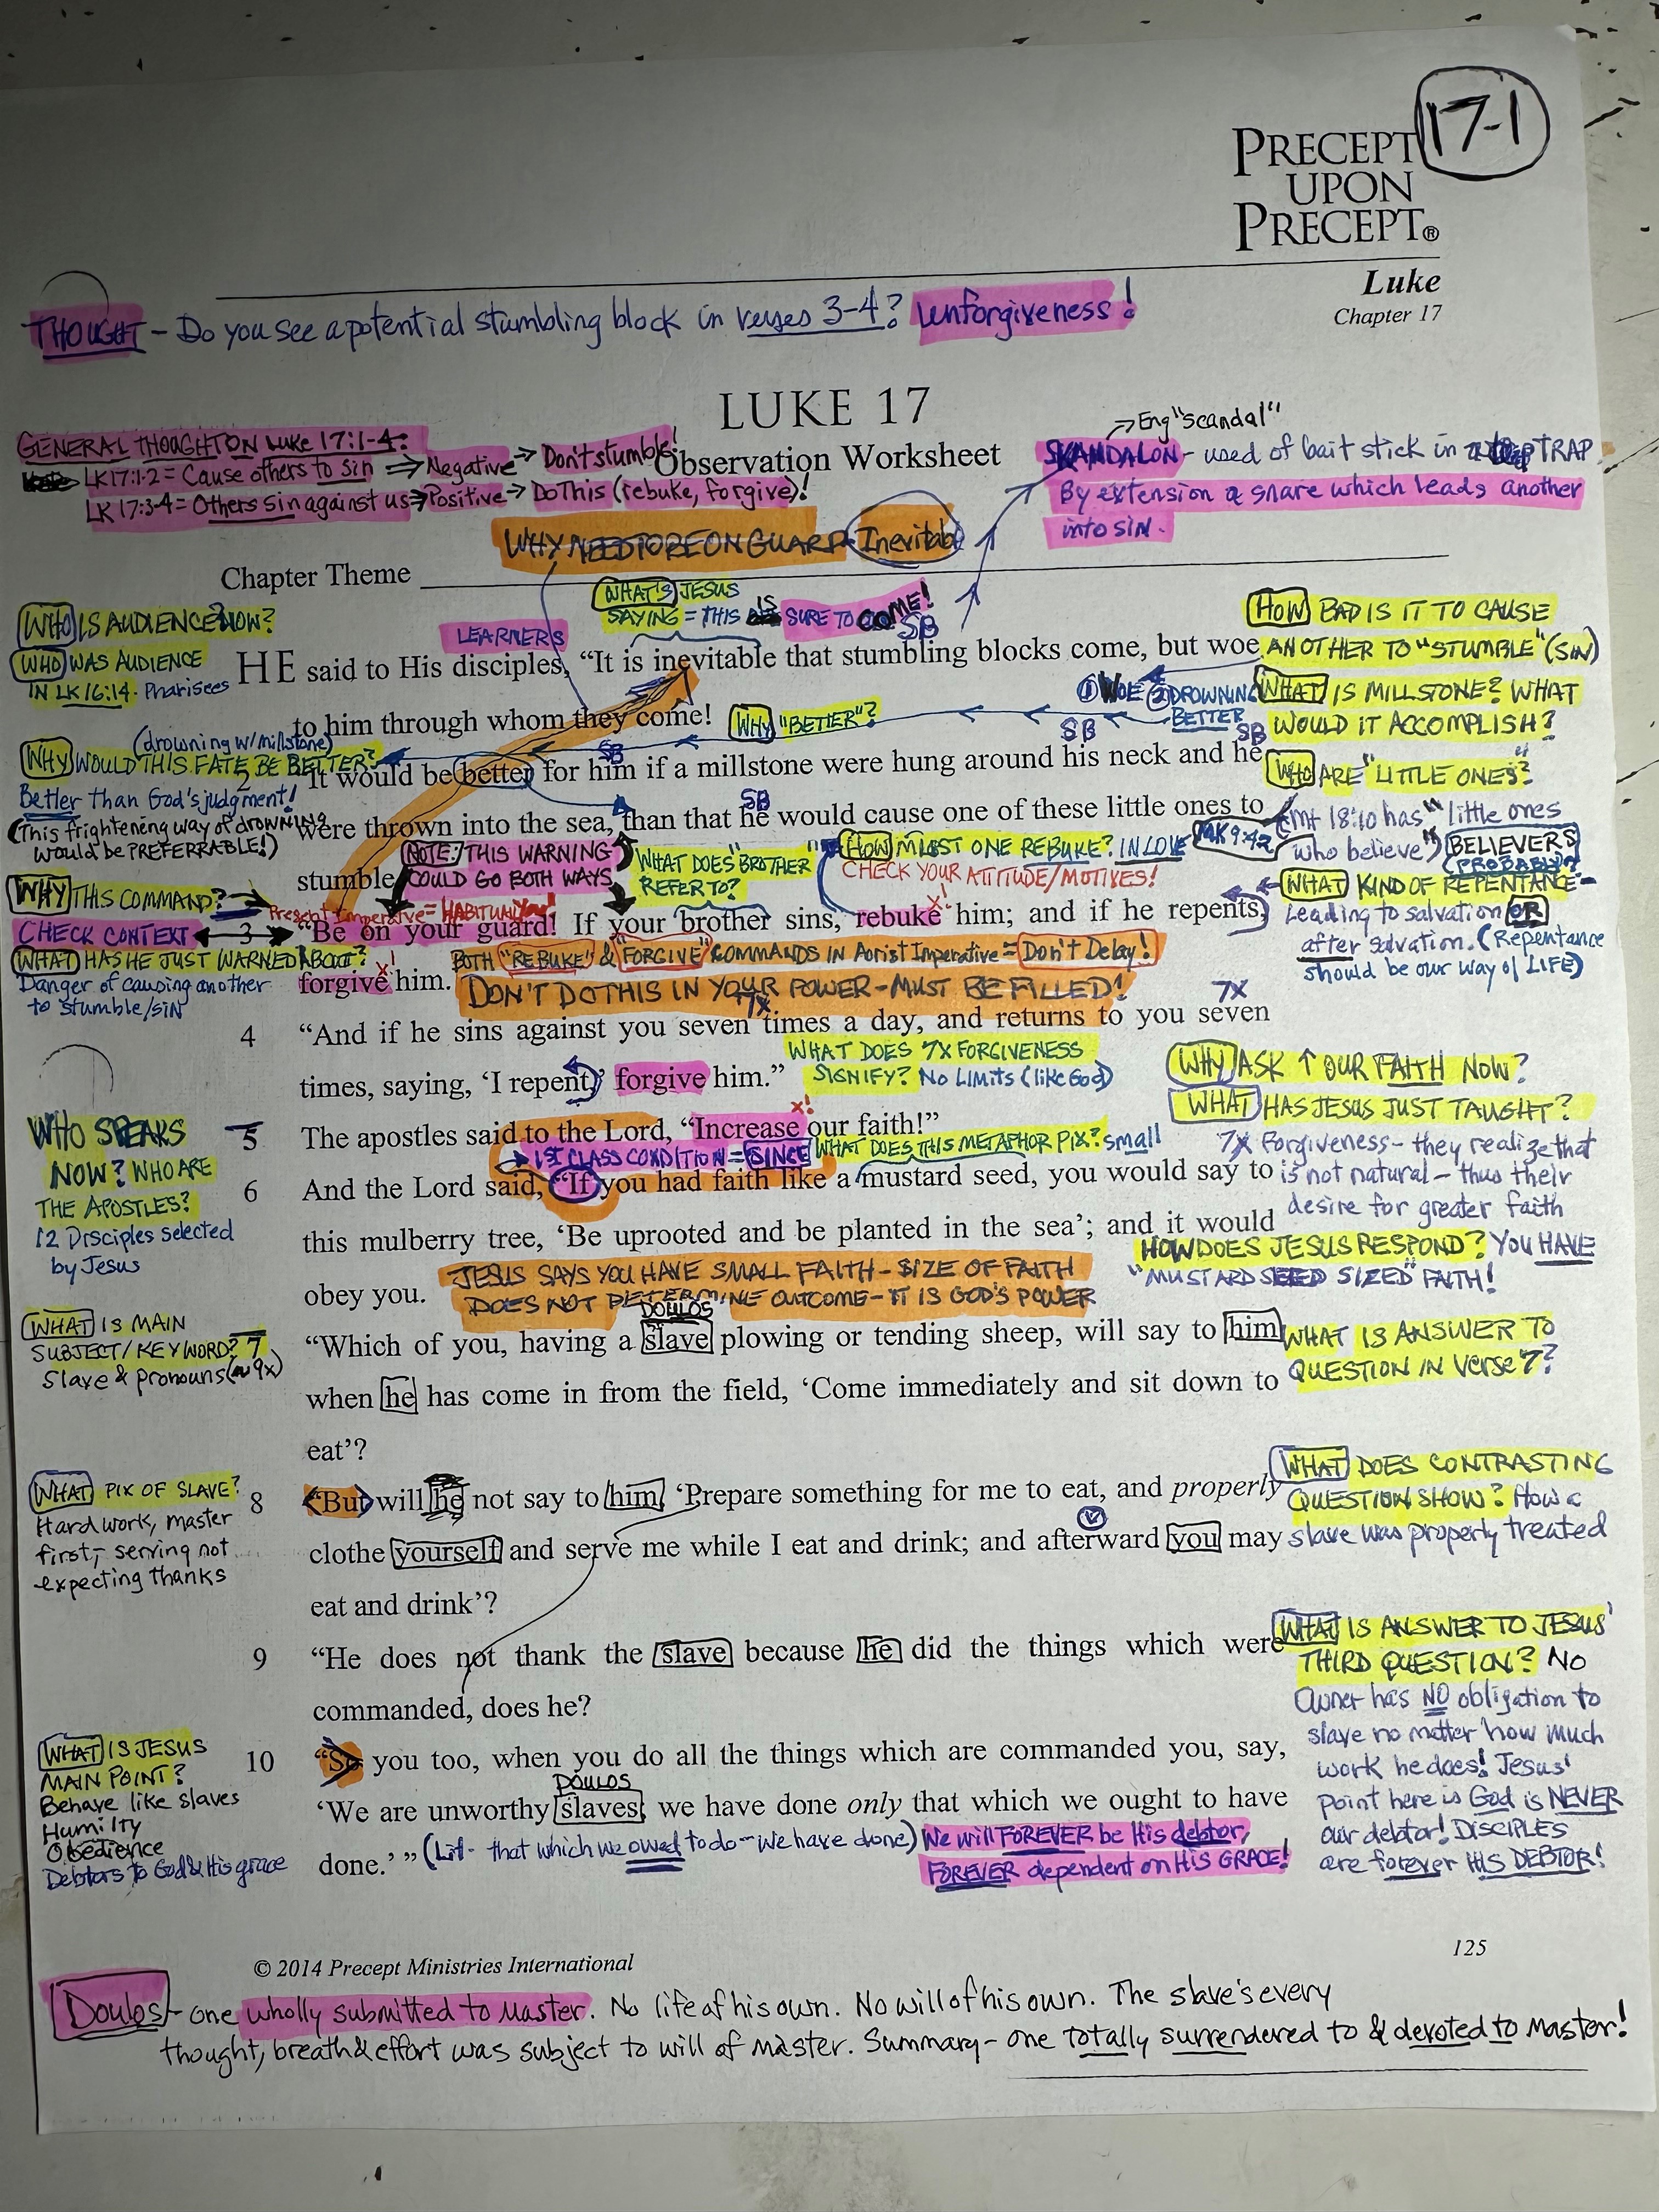 17-1
PRECEPT
UPON
PRECEPT®
Luke
Chapter 17
THOUGHT - Do you see a potential stumbling block in verses 3-4? Unforgiveness!
LUKE 17
→ Eng "scandal"
GENERAL THOUGHT ON Luke 17:1-4:
LK 17:1-2 = Cause others to sin ⇒ Negative → Don't stumble!
LK 17:3-4 = Others sin against us ⇒ Positive → Do This (rebuke, forgive)!
Observation Worksheet
SKANDALON - used of bait stick in a TRAP.
By extension a snare which leads another
into sin.
WHY NEED TO BE ON GUARD - Inevitab
Chapter Theme
WHAT'S JESUS
SAYING = THIS IS SURE TO COME!
SB
LEARNERS
WHO IS AUDIENCE NOW?
WHO WAS AUDIENCE
IN LK 16:14. Pharisees
HOW BAD IS IT TO CAUSE
ANOTHER TO "STUMBLE" (SIN)
HE said to His disciples, “It is inevitable that stumbling blocks come, but woe
① WOE ② DROWNING
BETTER
SB
SB
WHAT IS MILLSTONE? WHAT
WOULD IT ACCOMPLISH?
to him through whom they come!
WHY "BETTER"?
(drowning w/millstone)
WHY WOULD THIS FATE BE BETTER?
Better than God's judgment!
(This frightening way of drowning
would be PREFERRABLE!)
SB
2 “It would be better for him if a millstone were hung around his neck and he
WHO ARE "LITTLE ONES"?
SB
were thrown into the sea, than that he would cause one of these little ones to
MK 9:42
(Mt 18:10 has "little ones
who believe") BELIEVERS
(PROBABLY?
stumble
NOTE: THIS WARNING
COULD GO BOTH WAYS
WHAT DOES "BROTHER"
REFER TO?
HOW MUST ONE REBUKE? IN LOVE
CHECK YOUR ATTITUDE/MOTIVES!
WHY THIS COMMAND?
CHECK CONTEXT
WHAT HAS HE JUST WARNED ABOUT?
Danger of causing another
to stumble/sin
Present Imperative = HABITUALLY
WHAT KIND OF REPENTANCE -
Leading to salvation OR
after salvation. (Repentance
should be our way of LIFE)
3 “Be on your guard! If your brother sins, rebuke him; and if he repents,
forgive him.
BOTH "REBUKE" & "FORGIVE" COMMANDS IN Aorist Imperative = Don't Delay!
DON'T DO THIS IN YOUR POWER - MUST BE FILLED!
7X
7X
4 “And if he sins against you seven times a day, and returns to you seven
times, saying, ‘I repent,’ forgive him.”
WHAT DOES 7X FORGIVENESS
SIGNIFY? NO LIMITS (like God)
WHY ASK ↑ OUR FAITH NOW?
WHAT HAS JESUS JUST TAUGHT?
7X Forgiveness - they realize that
is not natural - thus their
desire for greater faith
WHO SPEAKS
NOW? WHO ARE
THE APOSTLES?
12 Disciples selected
by Jesus
5 The apostles said to the Lord, “Increase our faith!”
1ST CLASS CONDITION = SINCE
WHAT DOES THIS METAPHOR PIX? small
6 And the Lord said, “If you had faith like a mustard seed, you would say to
this mulberry tree, ‘Be uprooted and be planted in the sea’; and it would
obey you.
HOW DOES JESUS RESPOND? YOU HAVE
"MUSTARD SEED SIZED" FAITH!
JESUS SAYS YOU HAVE SMALL FAITH - SIZE OF FAITH
DOES NOT DETERMINE OUTCOME - IT IS GOD'S POWER
WHAT IS MAIN
SUBJECT/KEY WORD?
Slave & pronouns (~9x)
DOULOS
7 “Which of you, having a slave plowing or tending sheep, will say to him
when he has come in from the field, ‘Come immediately and sit down to
eat’?
WHAT IS ANSWER TO
QUESTION IN Verse 7?
WHAT PIX OF SLAVE?
Hard work, master
first, - serving not
expecting thanks
8 “But will he not say to him, ‘Prepare something for me to eat, and properly
clothe yourself and serve me while I eat and drink; and afterward you may
eat and drink’?
WHAT DOES CONTRASTING
QUESTION SHOW? How a
slave was properly treated
9 “He does not thank the slave because he did the things which were
commanded, does he?
WHAT IS ANSWER TO JESUS'
THIRD QUESTION? NO
Owner has NO obligation to
slave no matter how much
work he does! Jesus'
point here is God is NEVER
our debtor! DISCIPLES
are forever HIS DEBTOR!
WHAT IS JESUS
MAIN POINT?
Behave like slaves
Humilty
Obedience
Debtors to God & His grace
10 “So you too, when you do all the things which are commanded you, say,
DOULOS
‘We are unworthy slaves; we have done only that which we ought to have
done.’ ”
(Lit - that which we owed to do - we have done)
We will FOREVER be His debtor,
FOREVER dependent on HIS GRACE!
© 2014 Precept Ministries International
125
Doulos - one wholly submitted to Master. No life of his own. No will of his own. The slave's every
thought, breath & effort was subject to will of master. Summary - one totally surrendered to & devoted to Master!